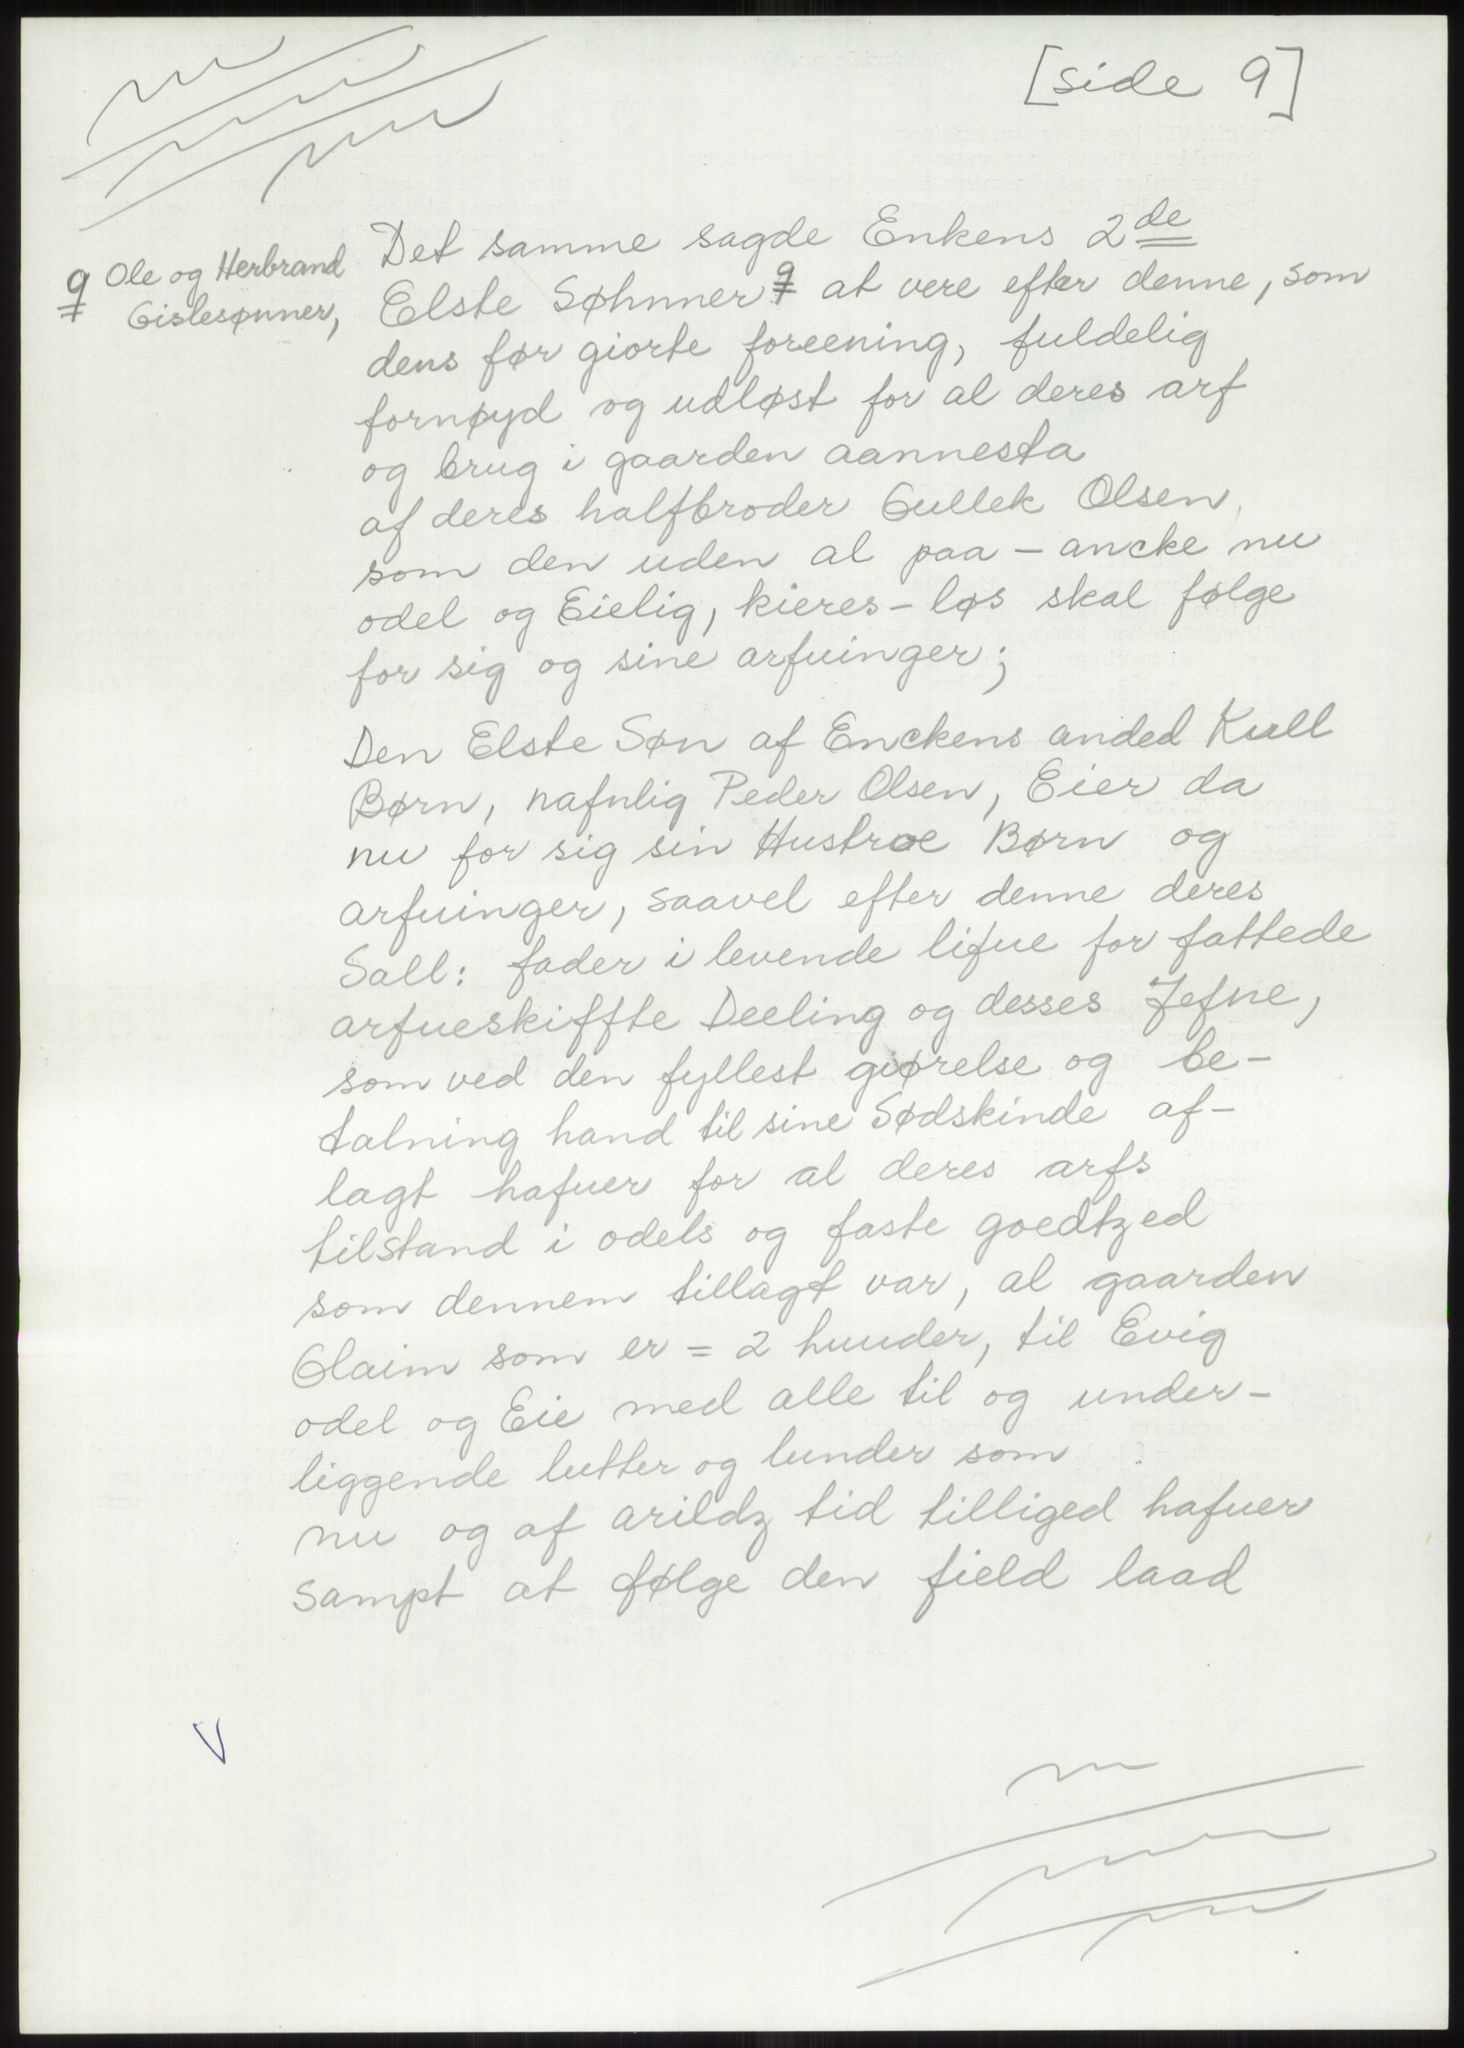 [side 9]
q Ole og Herbrand
Gislesønner,
Det samme sagde Enkens 2de
Elste Søhnner q at vere efter denne, som
dens før giorte foreening, fuldelig
fornøyd og udløst for al deres arf
og brug i gaarden aannesta
af deres halfbroder Gullek Olsen,
som den uden al paa - ancke nu
odel og Eielig, kieres - løs skal følge
for sig og sine arfuinger;
Den Elste Søn af Enckens anded Kull
Børn, nafnlig Peder Olsen, Eier da
nu for sig sin Hustroe Børn og
arfuinger, saavel efter denne deres
Sall: fader i levende lifue for fattede
arfueskiffte Deeling og desses Jefne,
som ved den fyllest giørelse og be-
talning hand til sine Sødskinde af-
lagt hafuer for al deres arfs
tilstand i odels og faste goedtzed
som dennem tillagt var, al gaarden
Glaim som er = 2 huuder, til Evig
odel og Eie med alle til og under-
liggende lutter og lunder som
nu og af arildz tid tilliged hafuer
sampt at følge den field laad
V